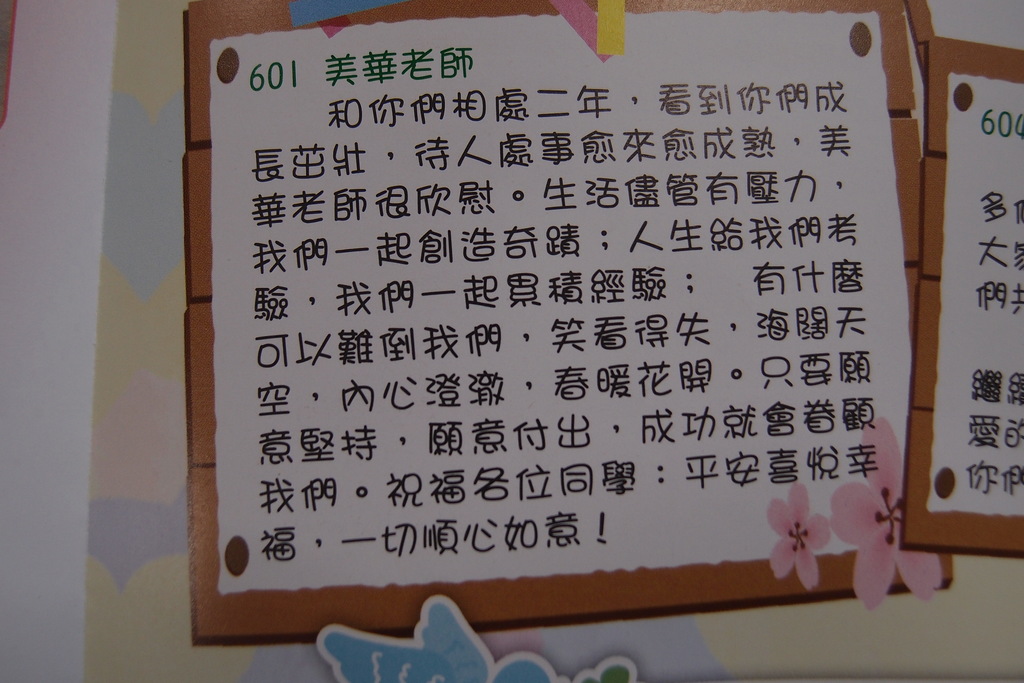 601 美華老師
和你們相處二年，看到你們成
長茁壯，待人處事愈來愈成熟，美
華老師很欣慰。生活儘管有壓力，
我們一起創造奇蹟；人生給我們考
驗，我們一起累積經驗； 有什麼
可以難倒我們，笑看得失，海闊天
空，內心澄澈，春暖花開。只要願
意堅持，願意付出，成功就會眷顧
我們。祝福各位同學：平安喜悅幸
福，一切順心如意！
604
多
大家
們共
繼續
愛的
你們